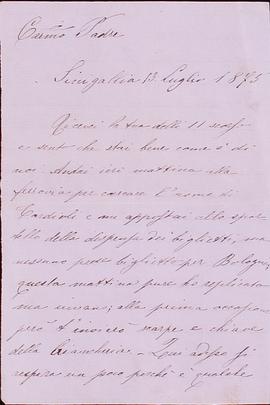 Carmo Padre
Sinigallia 13 Luglio 1875
Ricevei la tua delli 11 scorso
e sento che stai bene come si dì
noi. Andai ieri mattina alla
ferrovia per cercare l'uomo di
Tardioli e mi appostai allo spor-
tello della dispensa dei biglietti, ma
nessuno prese biglietto per Bologna,
questa mattina pure ho replicato
ma invano; alla prima occasione
però t'invierò scarpe e chiave
della biancheria. Qui adesso si
respira un poco perchè è qualche